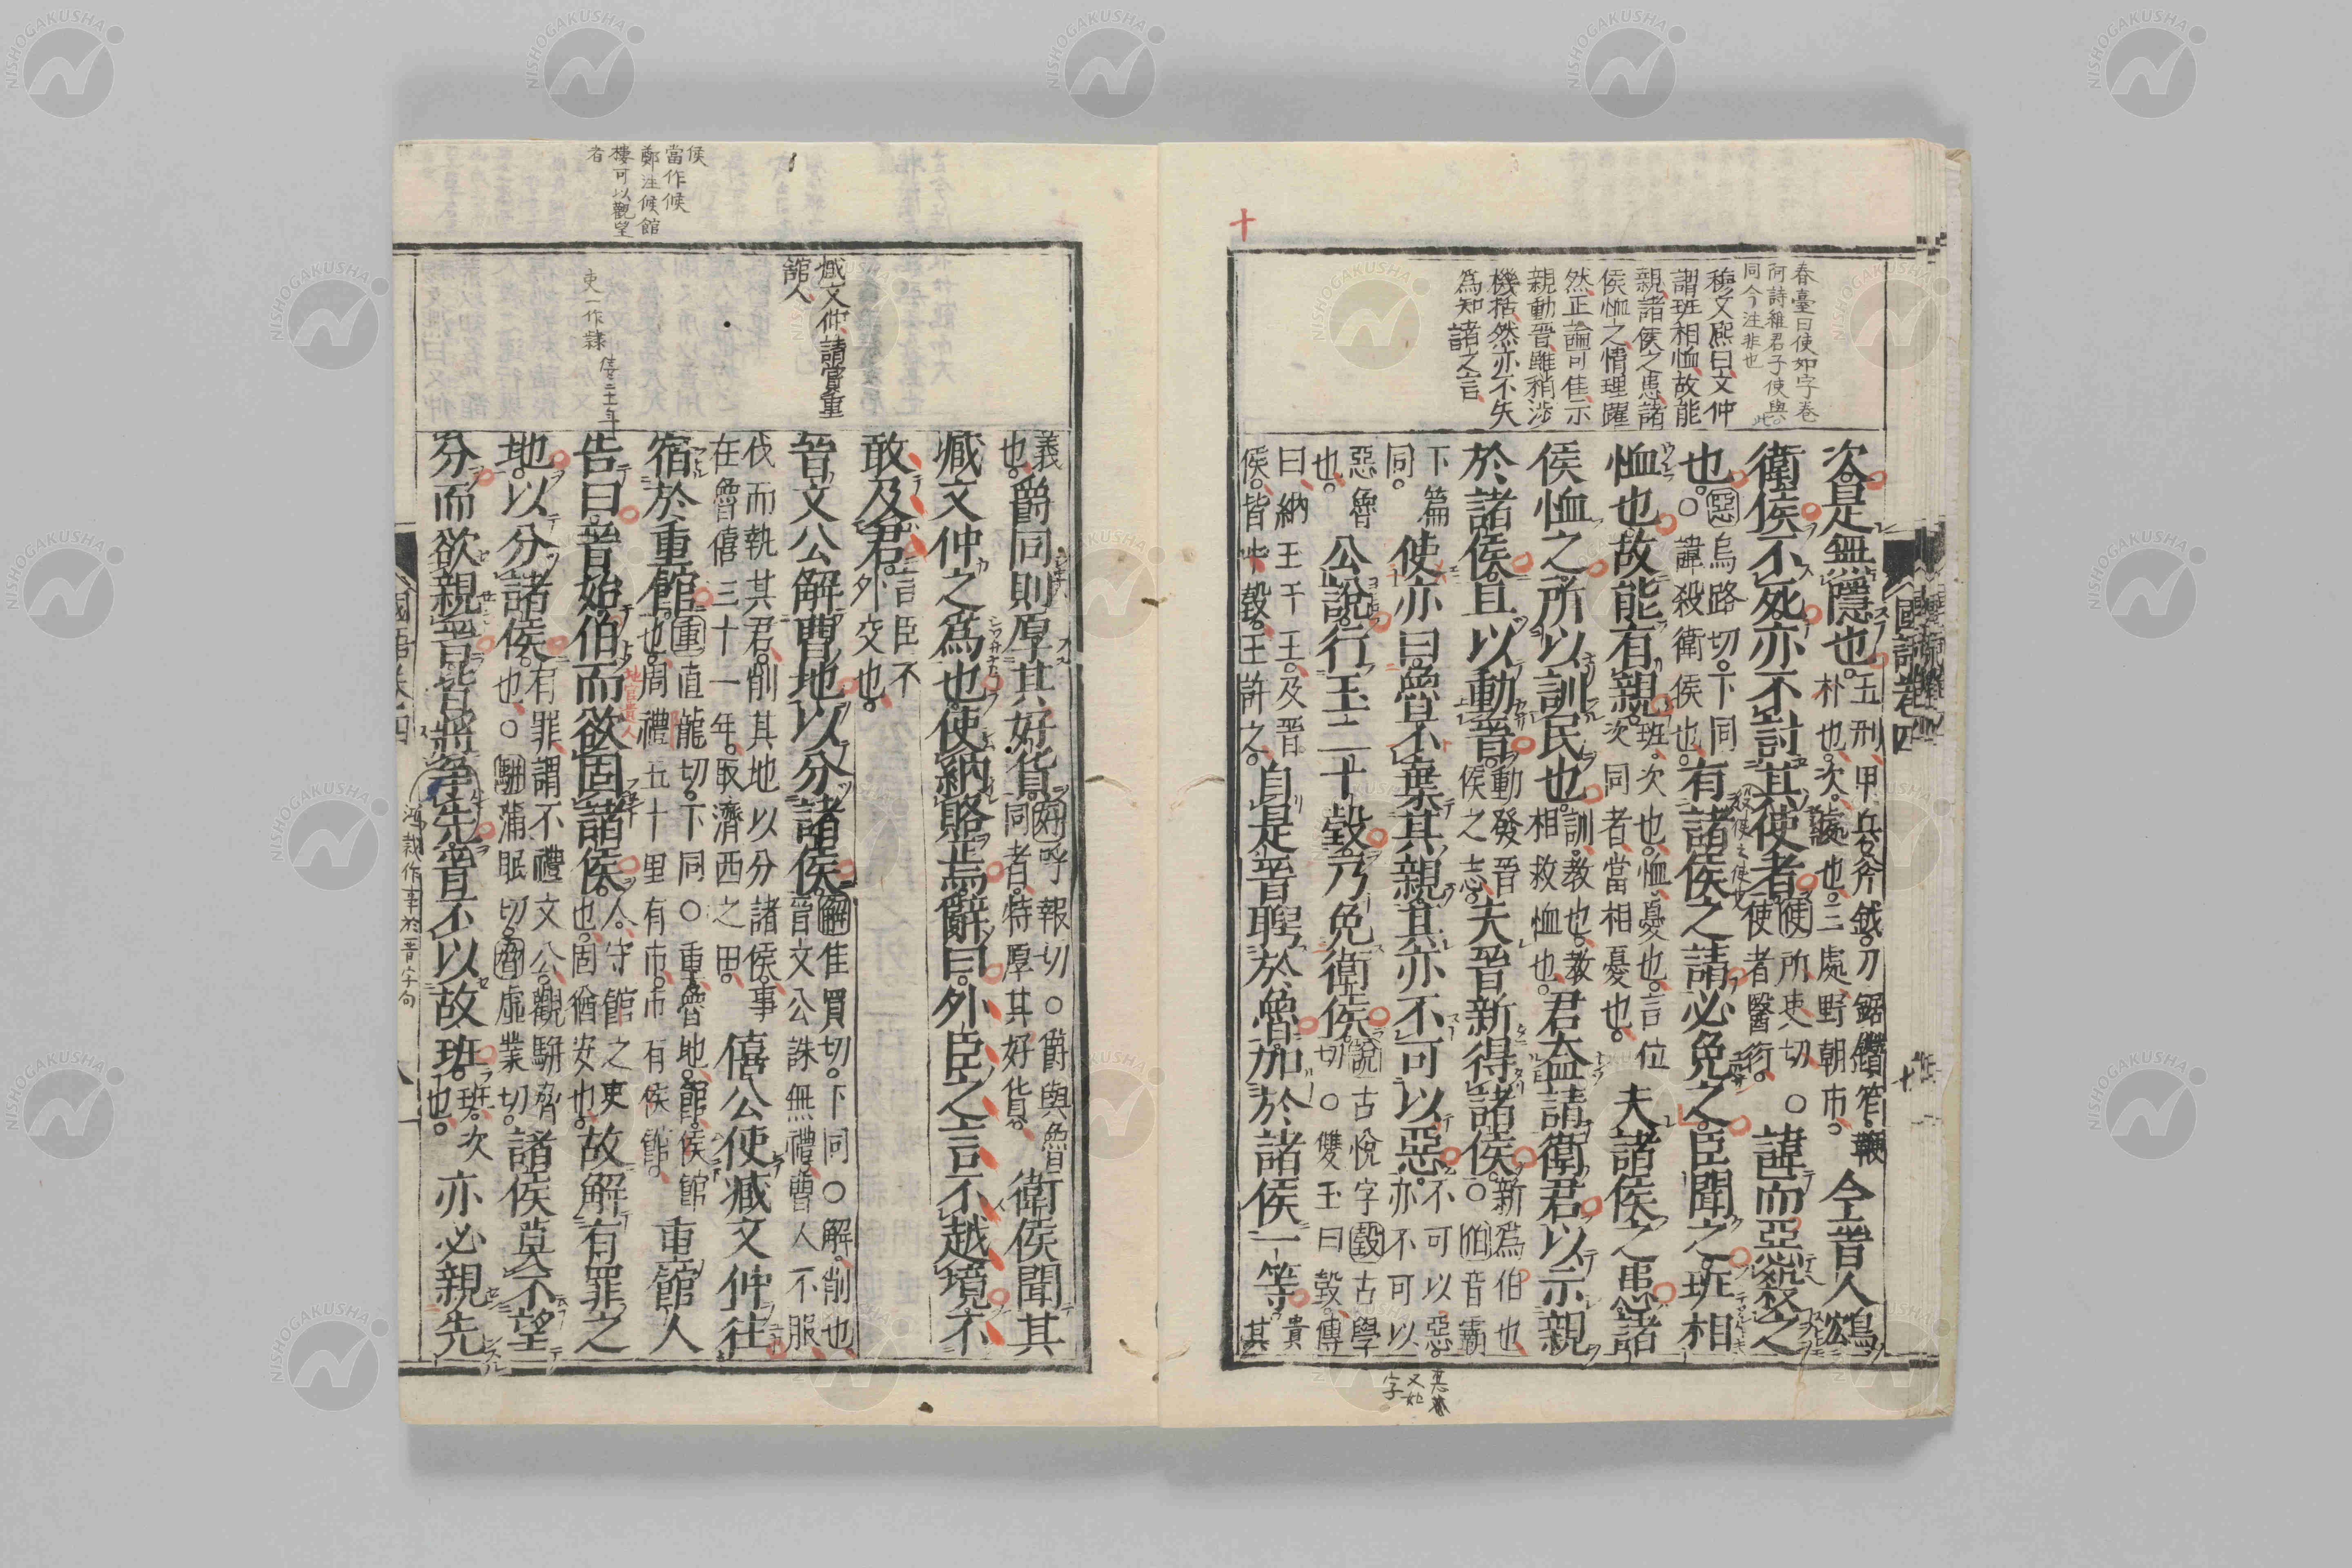 春臺曰使如字卷
阿詩雅君子使與此
同今注非也
穆文熙曰文仲
謂班相恤故能
親諸侯之患諸
侯恤之情理躍
然正論可佳示
親動晉雖稍涉
機括然亦不失
爲知諸之言
次是無隱也。五刑甲兵斧鉞刀鋸鑽笮鞭
朴也次處也三處野朝市今晉人鴆
衛侯不死亦不討其使者使所吏切
使者醫衍○諱而惡殺之
也○惡烏路切下同
諱殺衛侯也有諸侯之請必免之臣聞之班相
恤也故能有親班次也恤憂也言位
次同者當相憂也夫諸侯之患諸
侯恤之所以訓民也訓教也教
相救恤也君盍請衛君以示親
於諸侯且以動晉動發晉
侯之志夫晉新得諸侯新爲伯也
○伯音霸
下篇
同使亦曰魯不棄其親其亦不可以惡不可以惡
亦不可以
惡魯
也公說行玉二十瑴乃免衛侯說古悅字瑴古學
切○雙玉曰瑴傳
曰納玉于王及晉
侯皆十瑴王許之自是晉聘於魯加於諸侯一等貴
其
國語卷四
十
義
也爵同則厚其好貨好呼報切○爵與魯
同者特厚其好貨衛侯聞其
臧文仲之爲也使納賂焉辭曰外臣之言不越境不
敢及君言臣不
外交也
臧文仲請賞重
館人
晉文公解曹地以分諸侯解佳買切下同○解削也
晉文公誅無禮曹人不服
伐而執其君削其地以分諸侯事
在魯僖三十一年取濟西之田僖公使臧文仲往
宿於重館重直龍切下同○重魯地館候館
也周禮五十里有市市有侯館重館人
告曰晉始伯而欲固諸侯人守館之吏
也固猶安也故解有罪之
地以分諸侯有罪謂不禮文公觀駢脅
也○駢蒲眠切脅虛業切諸侯莫不望
分而欲親晉皆將爭先晉不以故班班次
也亦必親先
侯
當作候
鄭注候館
樓可以觀望
者
吏一作隸
僖三十一年
地官遺人